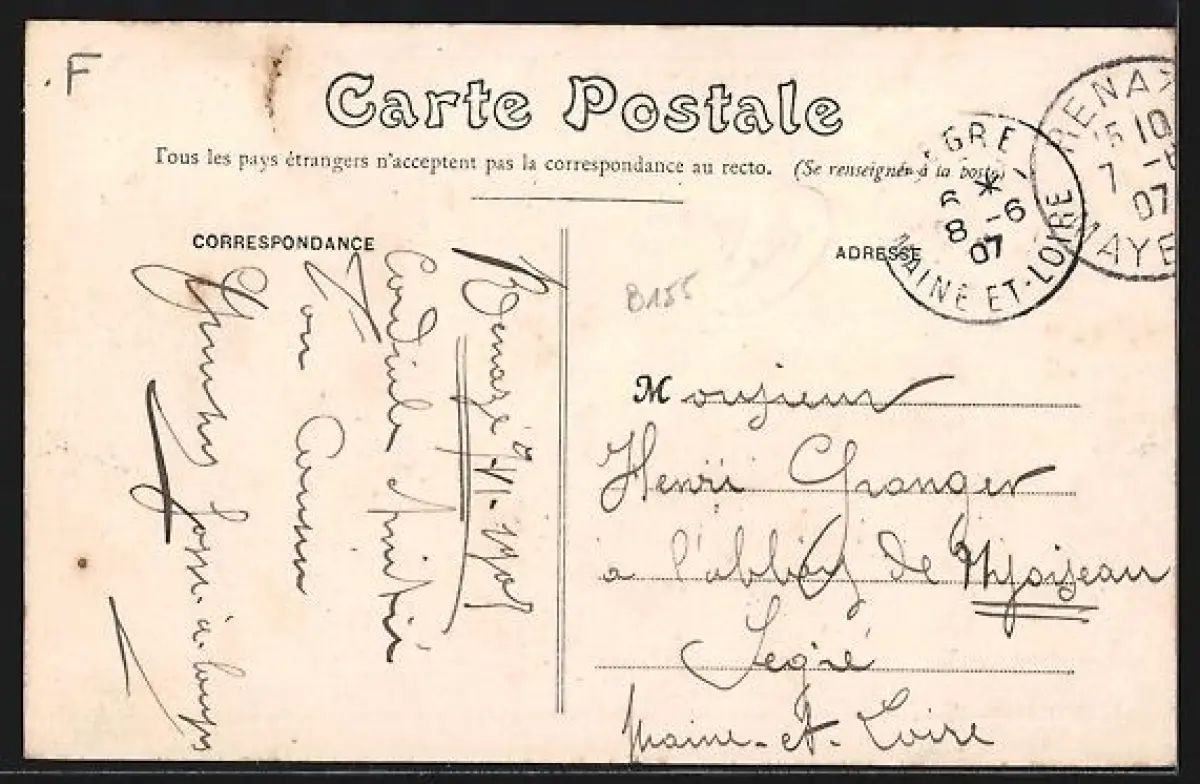 F
Carte Postale
Tous les pays étrangers n'acceptent pas la correspondance au recto. (Se renseigner à la poste)
CORRESPONDANCE
ADRESSE
GRÉ
6 *
8 -6
07
MAINE ET-LOIRE
RENAZ
15 10
7 -6
07
MAYE
B155
Cordiale Amitié
Ton Cousin
Monsieur
Henri Granger
à l'abbaye de Nyoiseau
Segré
Maine-et-Loire